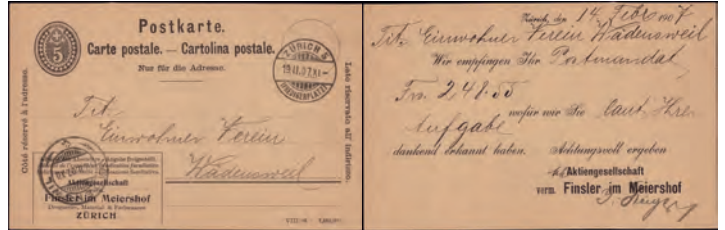 Postkarte.
Carte postale. — Cartolina postale.
Nur für die Adresse.
5
ZÜRICH
Côté réservé à l'adresse.
Lato riservato all' indirizzo.
Tit.
Einwohner Verein
Wädensweil
Aktiengesellschaft
Finsler im Meiershof
ZÜRICH
Zürich, den 14. Febr. 1907
Tit. Einwohner Verein Wädensweil
Wir empfingen Ihr Postmandat
Frs. 248.55
wofür wir Sie laut Ihrer
Aufgabe
dankend erkannt haben. Achtungsvoll ergeben
Aktiengesellschaft
vorm. Finsler im Meiershof